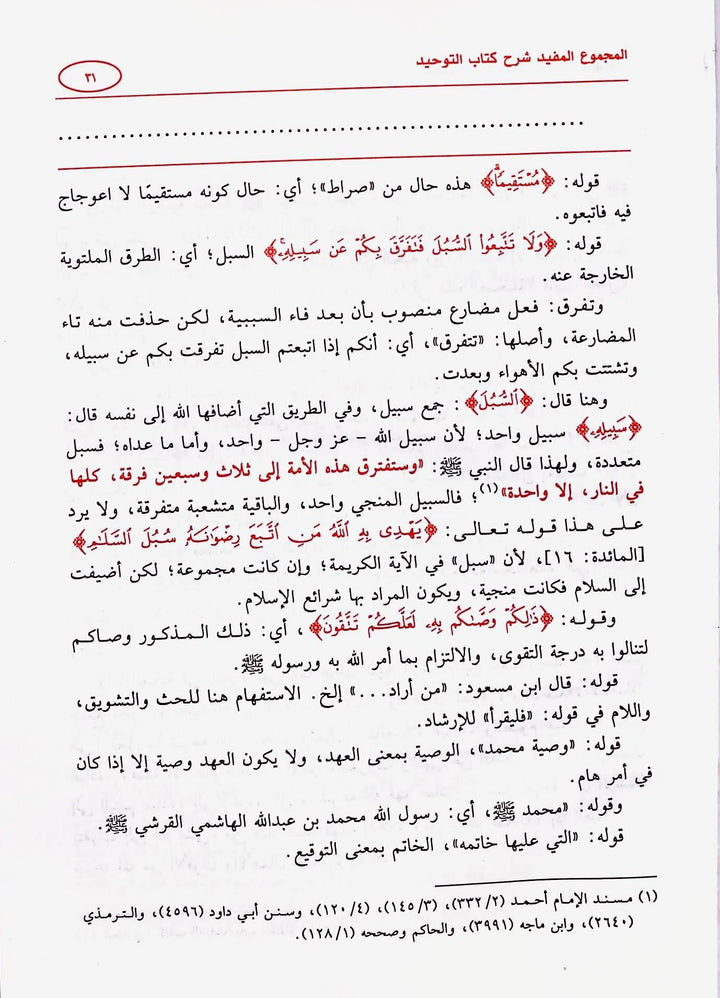 المجموع المفيد شرح كتاب التوحيد
٣١
............................................................
قوله: ﴿مُسْتَقِيمًا﴾ هذه حال من «صراط»؛ أي: حال كونه مستقيمًا لا اعوجاج
فيه فاتبعوه.
قوله: ﴿وَلَا تَتَّبِعُوا۟ ٱلسُّبُلَ فَتَفَرَّقَ بِكُمْ عَن سَبِيلِهِۦ﴾ السبل؛ أي: الطرق الملتوية
الخارجة عنه.
وتفرق: فعل مضارع منصوب بأن بعد فاء السببية، لكن حذفت منه تاء
المضارعة، وأصلها: «تتفرق»، أي: أنكم إذا اتبعتم السبل تفرقت بكم عن سبيله،
وتشتتت بكم الأهواء وبعدت.
وهنا قال: ﴿ٱلسُّبُلَ﴾: جمع سبيل، وفي الطريق التي أضافها الله إلى نفسه قال:
﴿سَبِيلِهِۦ﴾ سبيل واحد؛ لأن سبيل الله - عز وجل - واحد، وأما ما عداه؛ فسبل
متعددة، ولهذا قال النبي ﷺ: «وستفترق هذه الأمة إلى ثلاث وسبعين فرقة، كلها
في النار، إلا واحدة»(١)؛ فالسبيل المنجي واحد، والباقية متشعبة متفرقة، ولا يرد
على هذا قوله تعالى: ﴿يَهْدِى بِهِ ٱللَّهُ مَنِ ٱتَّبَعَ رِضْوَٰنَهُۥ سُبُلَ ٱلسَّلَٰمِ﴾
[المائدة: ١٦]، لأن «سبل» في الآية الكريمة؛ وإن كانت مجموعة؛ لكن أضيفت
إلى السلام فكانت منجية، ويكون المراد بها شرائع الإسلام.
وقوله: ﴿ذَٰلِكُمْ وَصَّىٰكُم بِهِۦ لَعَلَّكُمْ تَتَّقُونَ﴾، أي: ذلك المذكور وصاكم
لتنالوا به درجة التقوى، والالتزام بما أمر الله به ورسوله ﷺ.
قوله: قال ابن مسعود: «من أراد...» إلخ. الاستفهام هنا للحث والتشويق،
واللام في قوله: «فليقرأ» للإرشاد.
قوله: «وصية محمد»، الوصية بمعنى العهد، ولا يكون العهد وصية إلا إذا كان
في أمر هام.
وقوله: «محمد ﷺ، أي: رسول الله محمد بن عبدالله الهاشمي القرشي ﷺ.
قوله: «التي عليها خاتمه»، الخاتم بمعنى التوقيع.
(١) مسند الإمام أحمد (٣٣٢/٢)، (١٤٥/٣)، (١٢٠/٤)، وسنن أبي داود (٤٥٩٦)، والترمذي
(٢٦٤٠)، وابن ماجه (٣٩٩١)، والحاكم وصححه (١٢٨/١).